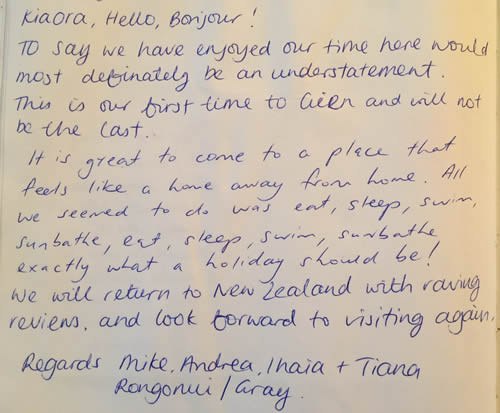 Kiaora, Hello, Bonjour!
TO say we have enjoyed our time here would
most definately be an understatement.
This is our first time to Gien and will not
be the last.
It is great to come to a place that
feels like a home away from home. All
we seemed to do was eat, sleep, swim,
sunbathe, eat, sleep, swim, sunbathe
exactly what a holiday should be!
We will return to New Zealand with raving
reviews, and look forward to visiting again.
Regards Mike, Andrea, Ihaia + Tiana
Rongonui / Gray